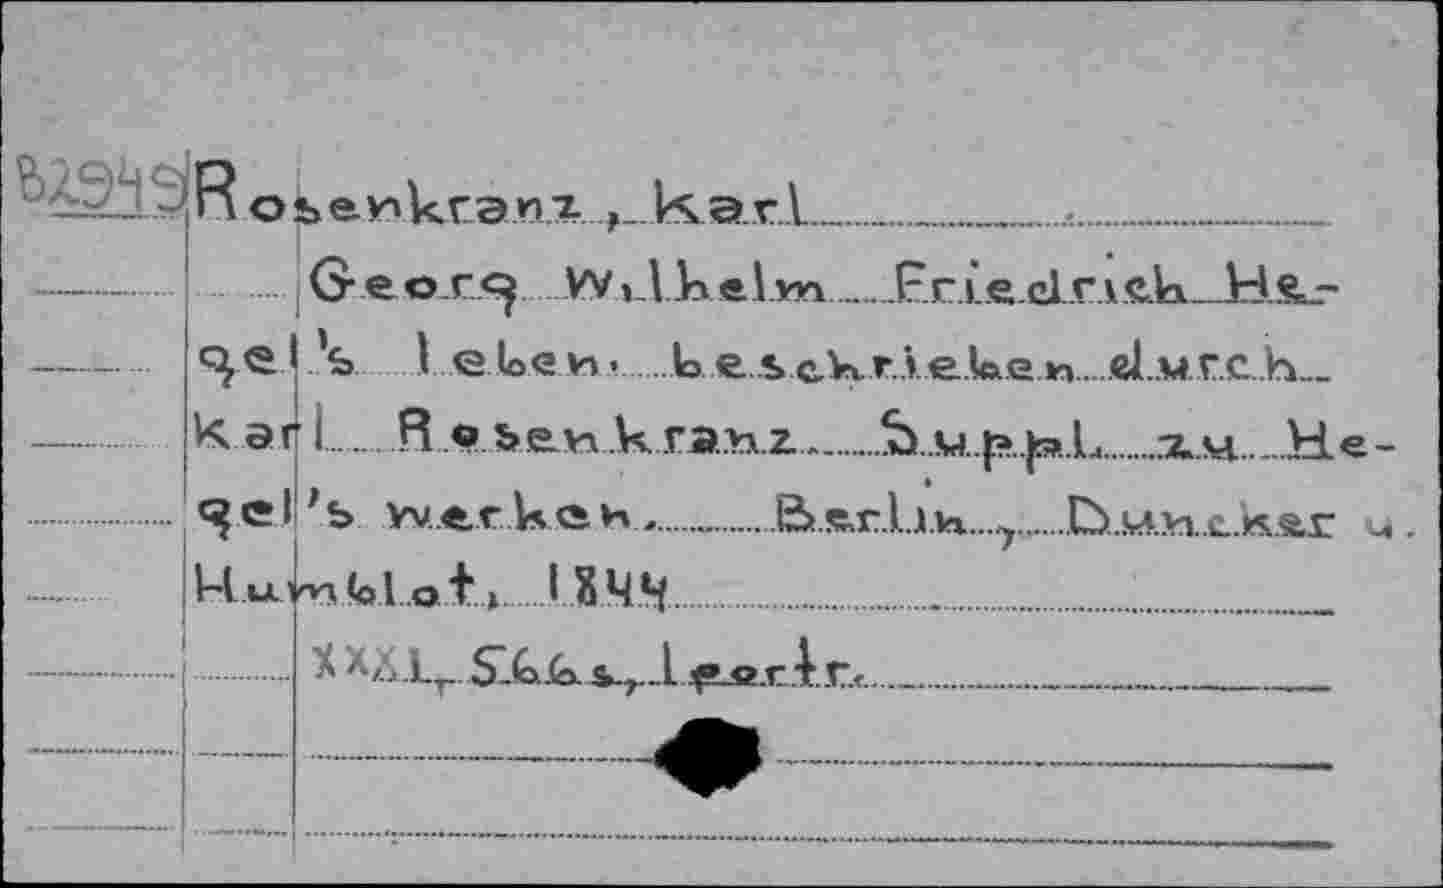 B2949 Rosenkranz, Karl
Georg Wilhelm Friedrich He-
gel's leben, beschrieben durch
Karl Rosenkranz. Suppl. zu He-
gel's werken. Berlin, Duncker u.
Humblot, 1844
XXXI, 566 s., 1 portr.